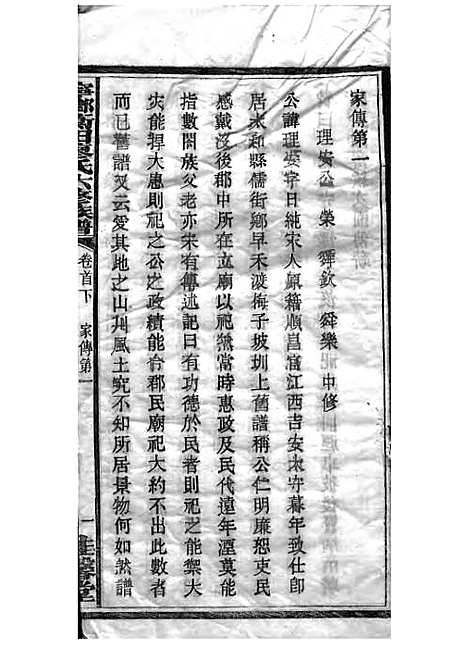 家傳第一
理安公 榮 舜欽 舜樂 中修
公諱理安字日純宋人原籍順昌官江西吉安太守暮年致仕卽
居太和縣儒街鄉早禾渡梅子坡圳上舊譜稱公仁明廉恕吏民
感戴沒後郡中所在立廟以祀然當時惠政及民代遠年湮莫能
指數閤族父老亦宋有傳述記曰有功德於民者則祀之能禦大
灾能捍大患則祀之公之政績能合郡民廟祀大約不出此數者
而已舊譜又云愛其地之山川風土究不知所居景物何如然譜
氏六修族譜
卷首下
家傳第一
一